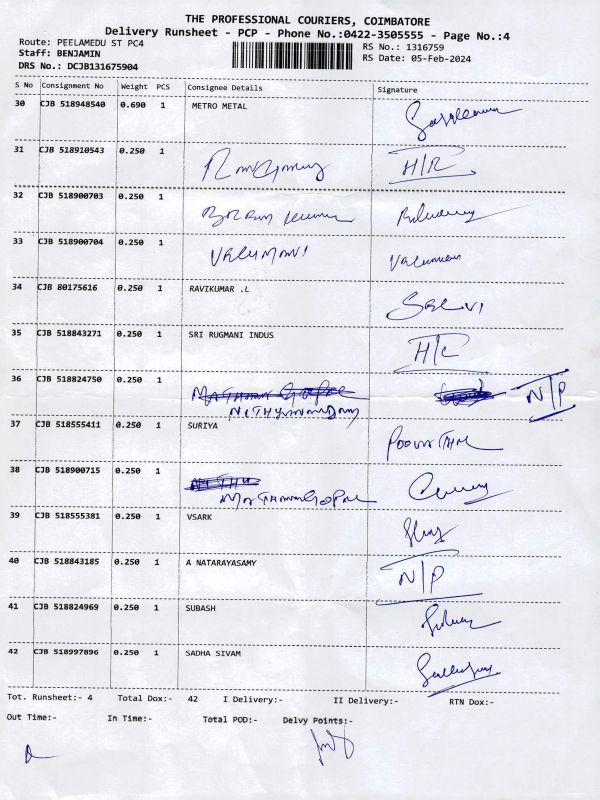 THE PROFESSIONAL COURIERS, COIMBATORE
Delivery Runsheet - PCP - Phone No.:0422-3505555 - Page No.:4
Route: PEELAMEDU ST PC4 RS No.: 1316759
Staff: BENJAMIN RS Date: 05-Feb-2024
DRS No.: DCJB131675904
S No Consignment No Weight PCS Consignee Details Signature
30 CJB 518948540 0.690 1 METRO METAL
31 CJB 518910543 0.250 1 H/R
32 CJB 518900703 0.250 1
33 CJB 518900704 0.250 1 VALUMANI
34 CJB 80175616 0.250 1 RAVIKUMAR .L SELVI
35 CJB 518843271 0.250 1 SRI RUGMANI INDUS H/C
36 CJB 518824750 0.250 1 N/P
37 CJB 518555411 0.250 1 SURIYA
38 CJB 518900715 0.250 1
39 CJB 518555381 0.250 1 VSARK
40 CJB 518843185 0.250 1 A NATARAYASAMY N/P
41 CJB 518824969 0.250 1 SUBASH
42 CJB 518997896 0.250 1 SADHA SIVAM
Tot. Runsheet:- 4 Total Dox:- 42 I Delivery:- II Delivery:- RTN Dox:-
Out Time:- In Time:- Total POD:- Delvy Points:-